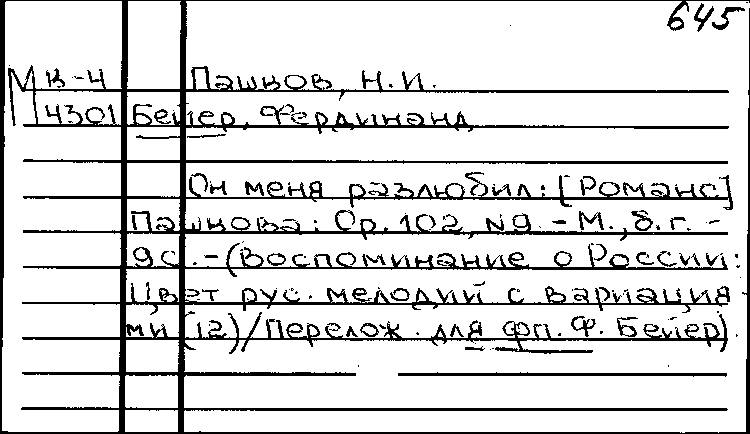 645
М к-4 Пашков, Н.И.
4301 Бейер, Фердинанд
Он меня разлюбил: [Романс]
Пашкова: Ор. 102, N9. - М., б.г. -
9с. - (Воспоминание о России:
Цвет рус. мелодий с вариация-
ми (12)/Перелож. для фп. Ф. Бейер).